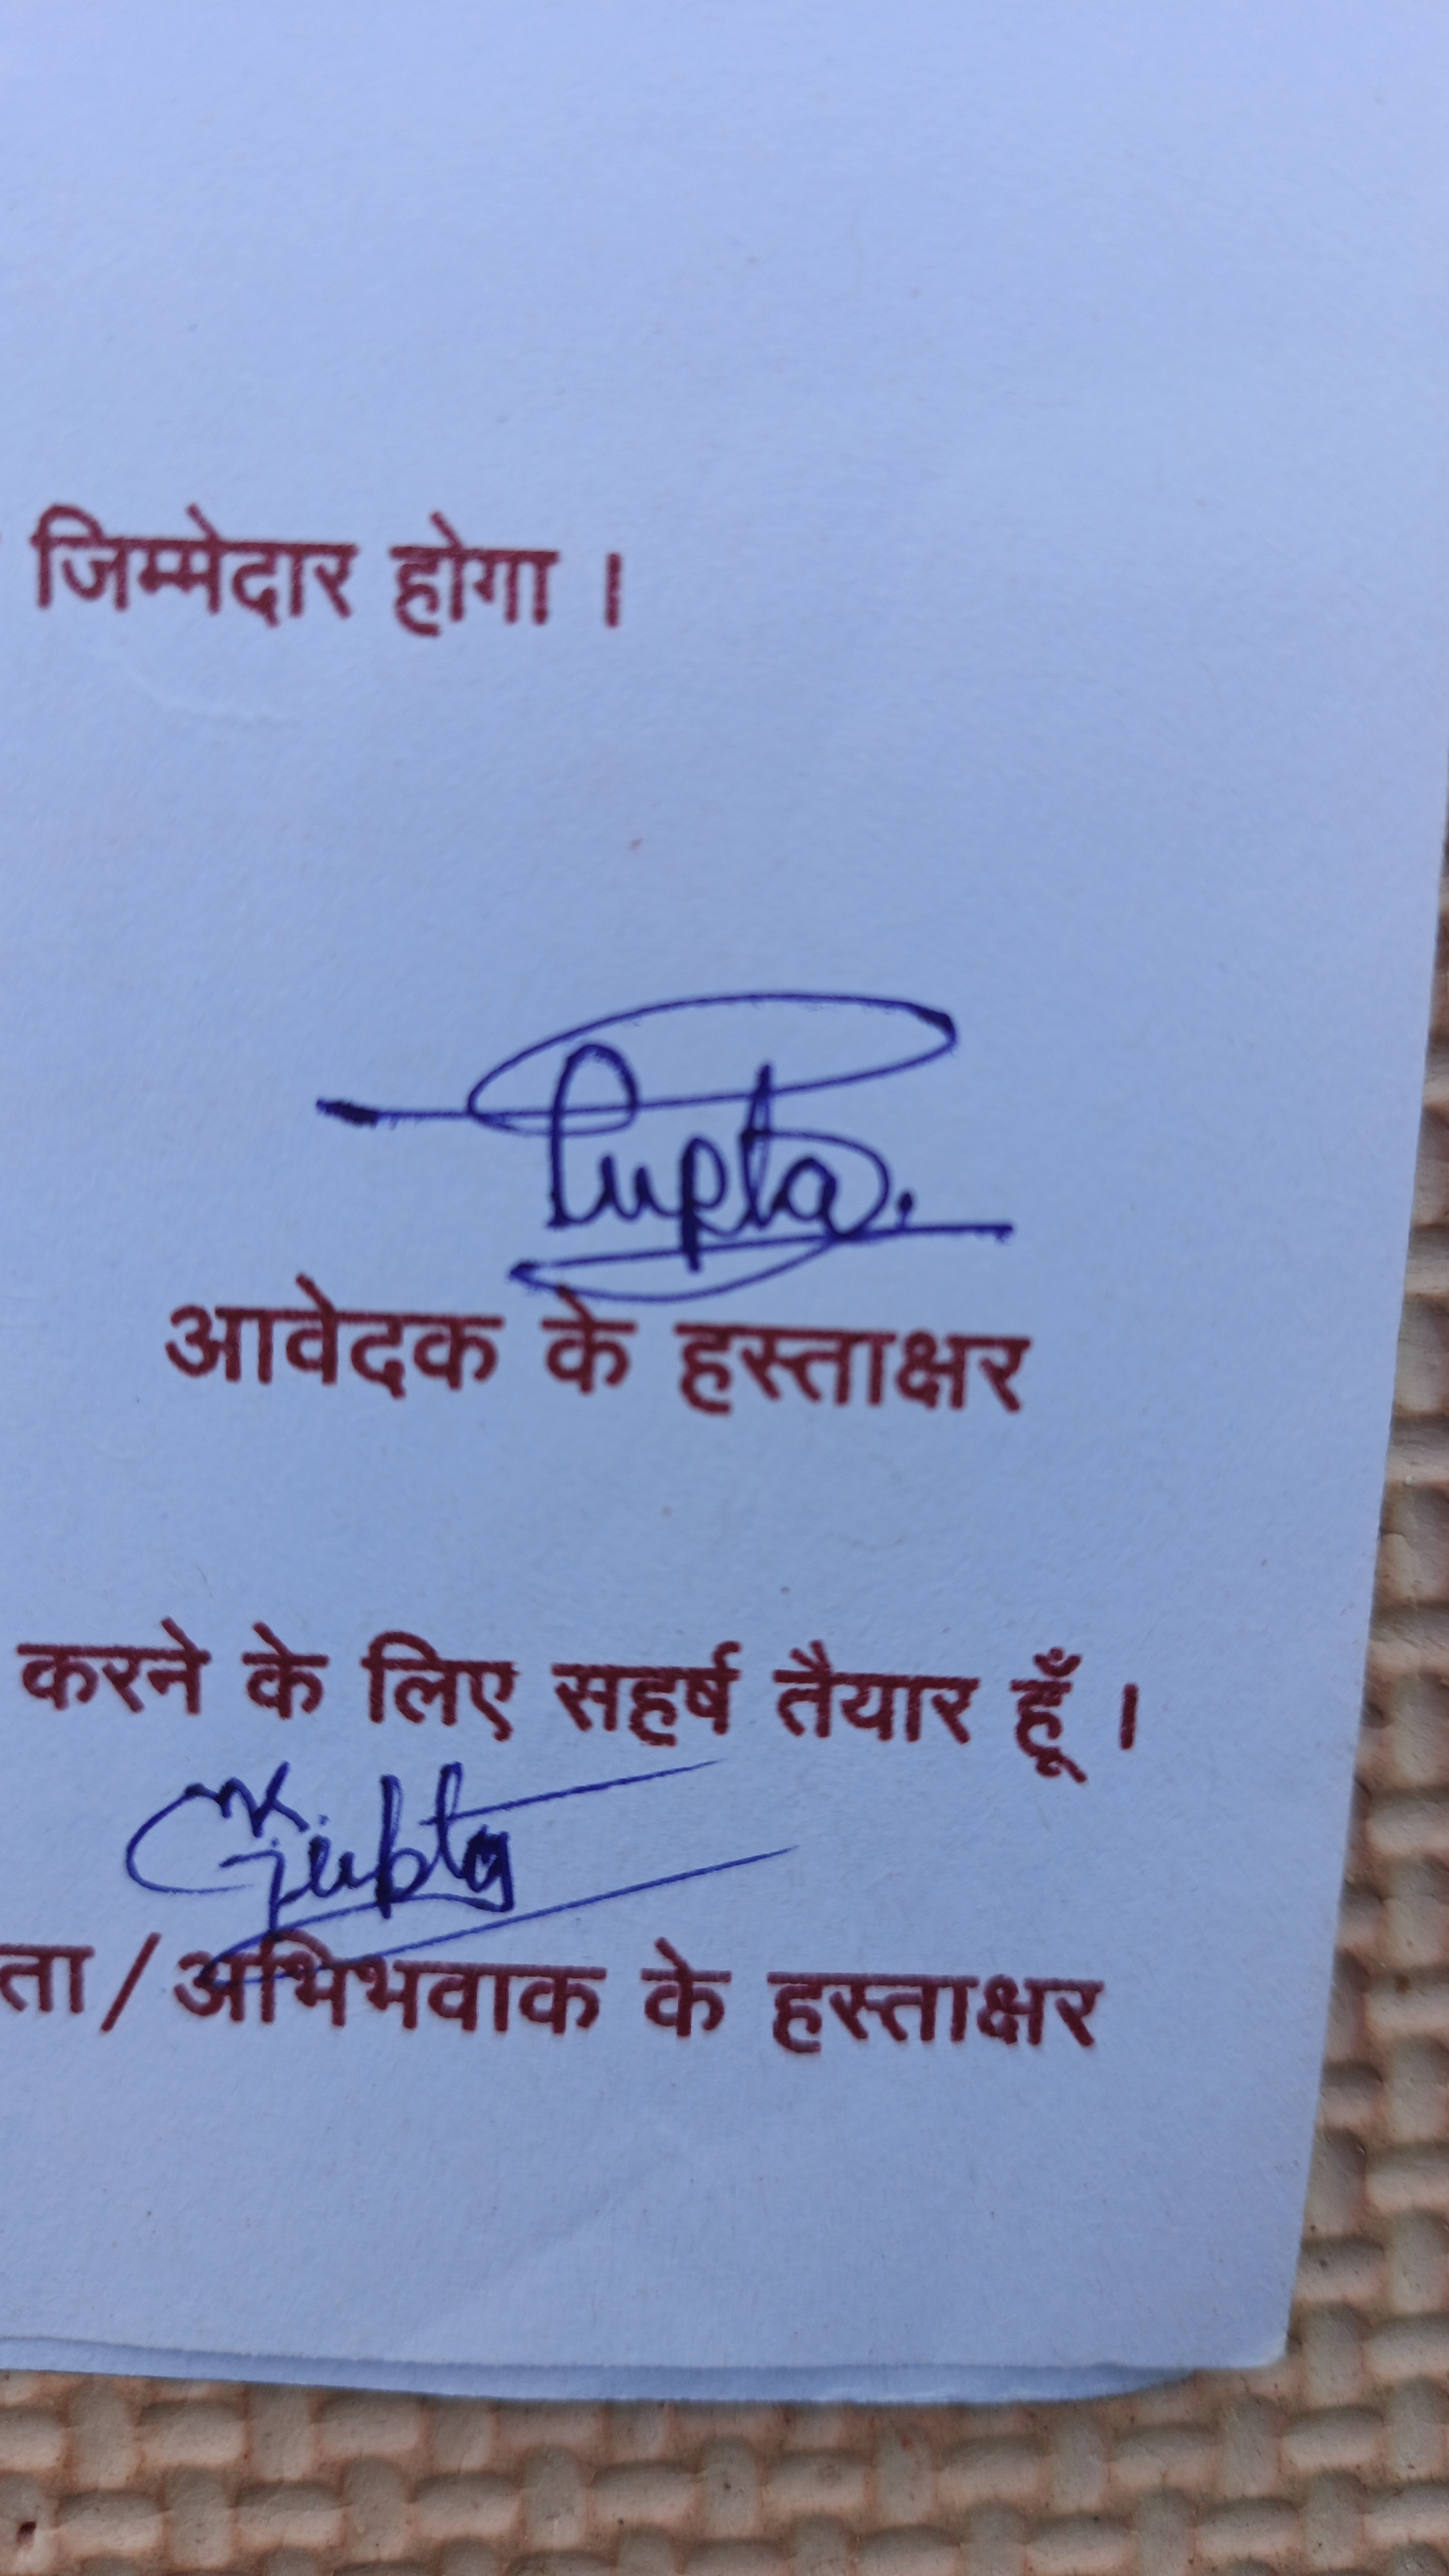 जिम्मेदार होगा ।
Gupta.
आवेदक के हस्ताक्षर
करने के लिए सहर्ष तैयार हूँ ।
Gupta
ता/अभिभवाक के हस्ताक्षर